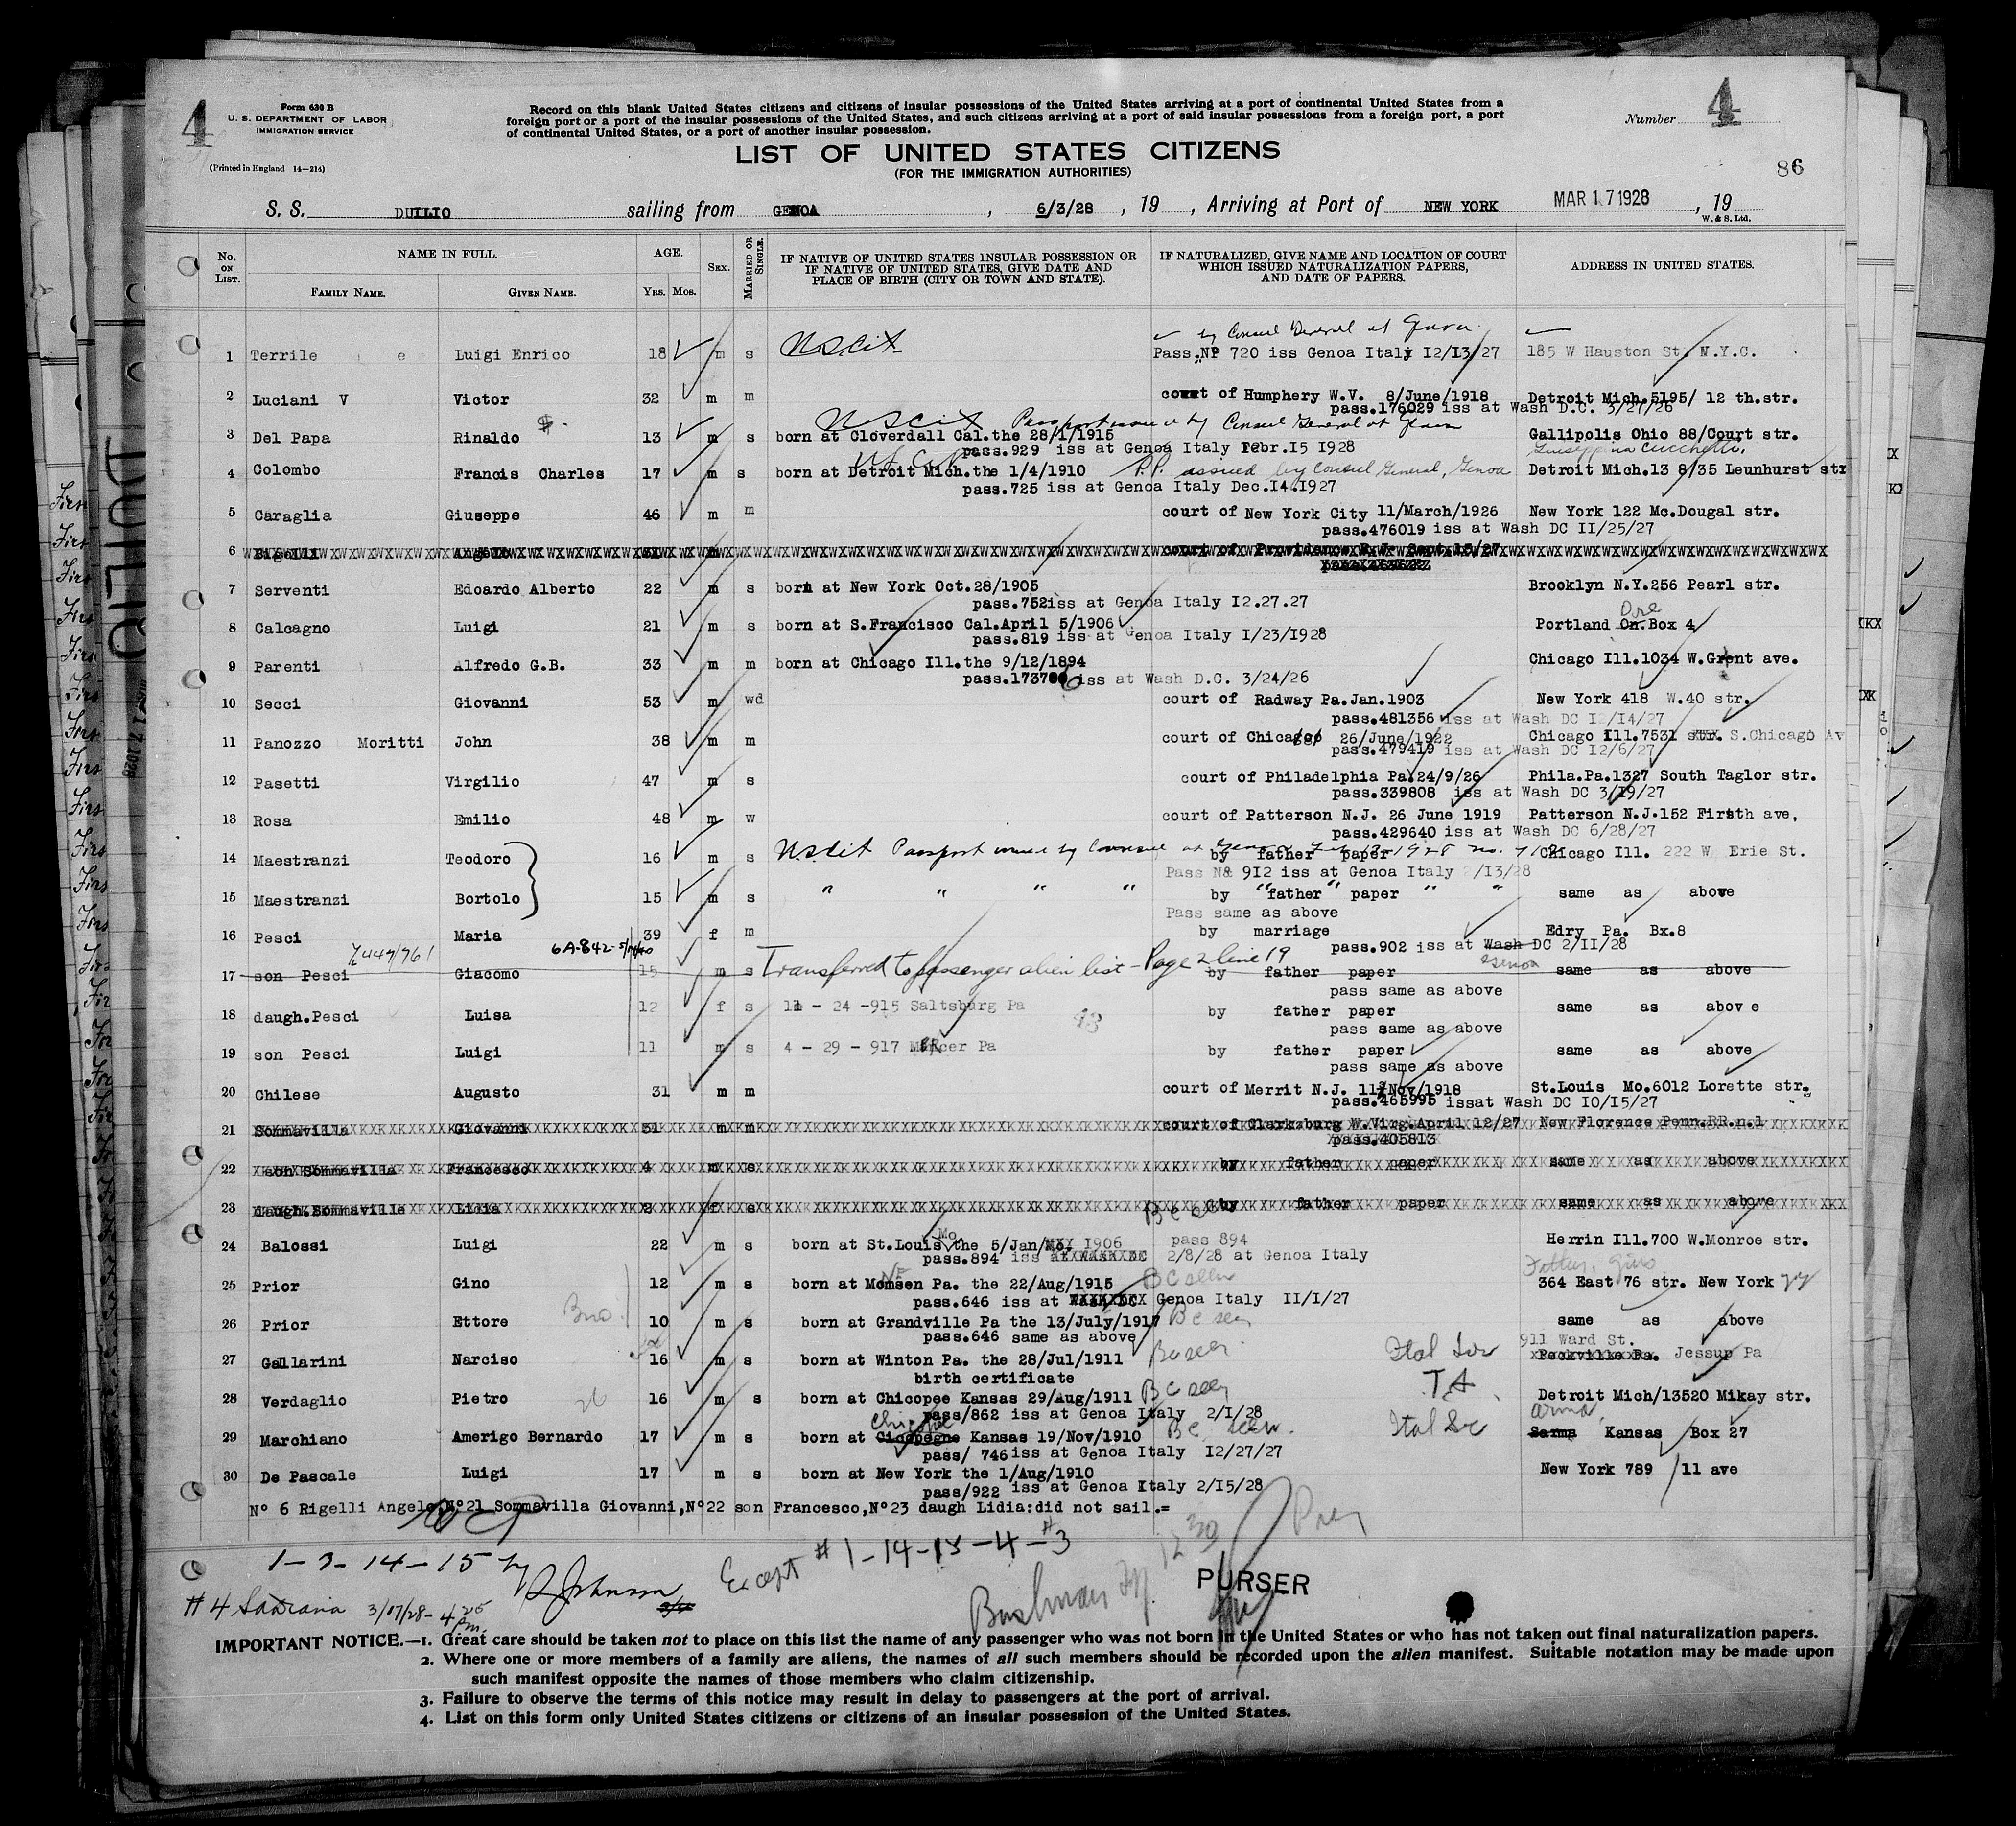 4
Form 630 B
U. S. DEPARTMENT OF LABOR
IMMIGRATION SERVICE
(Printed in England 14—214)
Record on this blank United States citizens and citizens of insular possessions of the United States arriving at a port of continental United States from a
foreign port or a port of the insular possessions of the United States, and such citizens arriving at a port of said insular possessions from a foreign port, a port
of continental United States, or a port of another insular possession.
Number 4
LIST OF UNITED STATES CITIZENS
(FOR THE IMMIGRATION AUTHORITIES)
86
S. S. DUILIO sailing from GENOA, 6/3/28, 19 , Arriving at Port of NEW YORK MAR 17 1928, 19
W. & S. Ltd.
No. ON LIST. NAME IN FULL. AGE. SEX. MARRIED OR SINGLE. IF NATIVE OF UNITED STATES INSULAR POSSESSION OR IF NATIVE OF UNITED STATES, GIVE DATE AND PLACE OF BIRTH (CITY OR TOWN AND STATE). IF NATURALIZED, GIVE NAME AND LOCATION OF COURT WHICH ISSUED NATURALIZATION PAPERS, AND DATE OF PAPERS. ADDRESS IN UNITED STATES.
FAMILY NAME. GIVEN NAME. YRS. MOS.
by Consul General at Genoa
1 Terrile e Luigi Enrico 18 m s US Cit Pass. Nº 720 iss Genoa Italy I2/I3/27 185 W Hauston St. N.Y.C.
2 Luciani V Victor 32 m m court of Humphery W.V. 8/June/1918 Detroit Mich.5195/ 12 th.str.
pass.176029 iss at Wash D.C. 3/27/26
US Cit Passport issued by Consul General at Genoa
3 Del Papa Rinaldo 13 m s born at Cloverdall Cal.the 28/1/1915 Gallipolis Ohio 88/Court str.
pass.929 iss at Genoa Italy Febr.I5 I928
4 Colombo Francis Charles 17 m s born at Detroit Mich.the 1/4/1910 P.P. issued by Consul General, Genoa Detroit Mich.13 8/35 Leunhurst str
pass.725 iss at Genoa Italy Dec.I4.I927
5 Caraglia Giuseppe 46 m m court of New York City 11/March/1926 New York 122 Mc.Dougal str.
pass.476019 iss at Wash DC II/25/27
6 Rigelli Angelo 31 m court of Providence R.I. Sept.15/27
7 Serventi Edoardo Alberto 22 m s born at New York Oct.28/1905 Brooklyn N.Y.256 Pearl str.
pass.752iss at Genoa Italy I2.27.27
8 Calcagno Luigi 21 m s born at S.Francisco Cal.April 5/1906 Portland On. Ore Box 4
pass.819 iss at Genoa Italy I/23/I928
9 Parenti Alfredo G.B. 33 m m born at Chicago Ill.the 9/12/1894 Chicago Ill.1034 W.Grent ave.
pass.173706 iss at Wash D.C. 3/24/26
10 Secci Giovanni 53 m wd court of Radway Pa.Jan.1903 New York 418 W.40 str.
pass.481356 iss at Wash DC I2/I4/27
11 Panozzo Moritti John 38 m m court of Chicago 26/June/1922 Chicago Ill.7531 str. S.Chicago Av
pass.479419 iss at Wash DC I2/6/27
12 Pasetti Virgilio 47 m s court of Philadelphia Pa.24/9/26 Phila.Pa.1327 South Taglor str.
pass.339808 iss at Wash DC 3/I9/27
13 Rosa Emilio 48 m w court of Patterson N.J. 26 June 1919 Patterson N.J.152 Firsth ave.
pass.429640 iss at Wash DC 6/28/27
14 Maestranzi Teodoro 16 m s US Cit Passport issued by Consul at Genoa by father paper Chicago Ill. 222 W Erie St.
Pass Nº 9I2 iss at Genoa Italy 2/I3/28
15 Maestranzi Bortolo 15 m s " " " " by father paper same as above
Pass same as above
16 Pesci Maria 39 f m by marriage Edry Pa. Bx.8
6A-842 pass.902 iss at Wash DC 2/II/28
Genoa
17 son Pesci Giacomo 15 m s Transferred to passenger alien list - Page 2 line 19 by father paper same as above
pass same as above
18 daugh.Pesci Luisa 12 f s 11 - 24 -915 Saltsburg Pa by father paper same as above
pass same as above
19 son Pesci Luigi 11 m s 4 - 29 - 917 Mercer Pa by father paper same as above
pass same as above
20 Chilese Augusto 31 m m court of Merrit N.J. 11/Nov/1918 St.Louis Mo.6012 Lorette str.
pass.465995 issat Wash DC IO/I5/27
21 Sommavilla Giovanni 31 m m court of Clarksburg W.Virg.April 12/27 New Florence Penn.RR.n.1
pass.405813
22 son Sommavilla Francesco 4 m s by father paper same as above
23 daugh.Sommavilla Lidia 2 f s by father paper same as above
24 Balossi Luigi 22 m s born at St.Louis Mo the 5/Jan/ 1906 pass 894 Herrin Ill.700 W.Monroe str.
pass.894 iss 2/8/28 at Genoa Italy
25 Prior Gino 12 m s born at Momsen Pa. the 22/Aug/1915 BC seen 364 East 76 str. New York
pass.646 iss at Genoa Italy II/I/27
26 Prior Ettore 10 m s born at Grandville Pa the 13/July/1917 BC seen same as above
pass.646 same as above
911 Ward St.
27 Gallarini Narciso 16 m s born at Winton Pa. the 28/Jul/1911 BC seen Peckville Pa. Jessup Pa
birth certificate
28 Verdaglio Pietro 16 m s born at Chicopee Kansas 29/Aug/1911 BC seen Detroit Mich/13520 Mikay str.
pass/862 iss at Genoa Italy 2/I/28
29 Marchiano Amerigo Bernardo 17 m s born at Cicopegne Kansas 19/Nov/1910 BC seen Sarma Arma Kansas Box 27
pass/ 746iss at Genoa Italy I2/27/27
30 De Pascale Luigi 17 m s born at New York the 1/Aug/1910 New York 789 /11 ave
pass/922 iss at Genoa Italy 2/15/28
Nº 6 Rigelli Angelo,Nº21 Sommavilla Giovanni,Nº22 son Francesco,Nº23 daugh Lidia:did not sail.=
1-3-14-15 by Johnson
Except #1-14-15-4-#3
#4 3/17/28-
PURSER
IMPORTANT NOTICE.—1. Great care should be taken not to place on this list the name of any passenger who was not born in the United States or who has not taken out final naturalization papers.
2. Where one or more members of a family are aliens, the names of all such members should be recorded upon the alien manifest. Suitable notation may be made upon
such manifest opposite the names of those members who claim citizenship.
3. Failure to observe the terms of this notice may result in delay to passengers at the port of arrival.
4. List on this form only United States citizens or citizens of an insular possession of the United States.
DUILIO